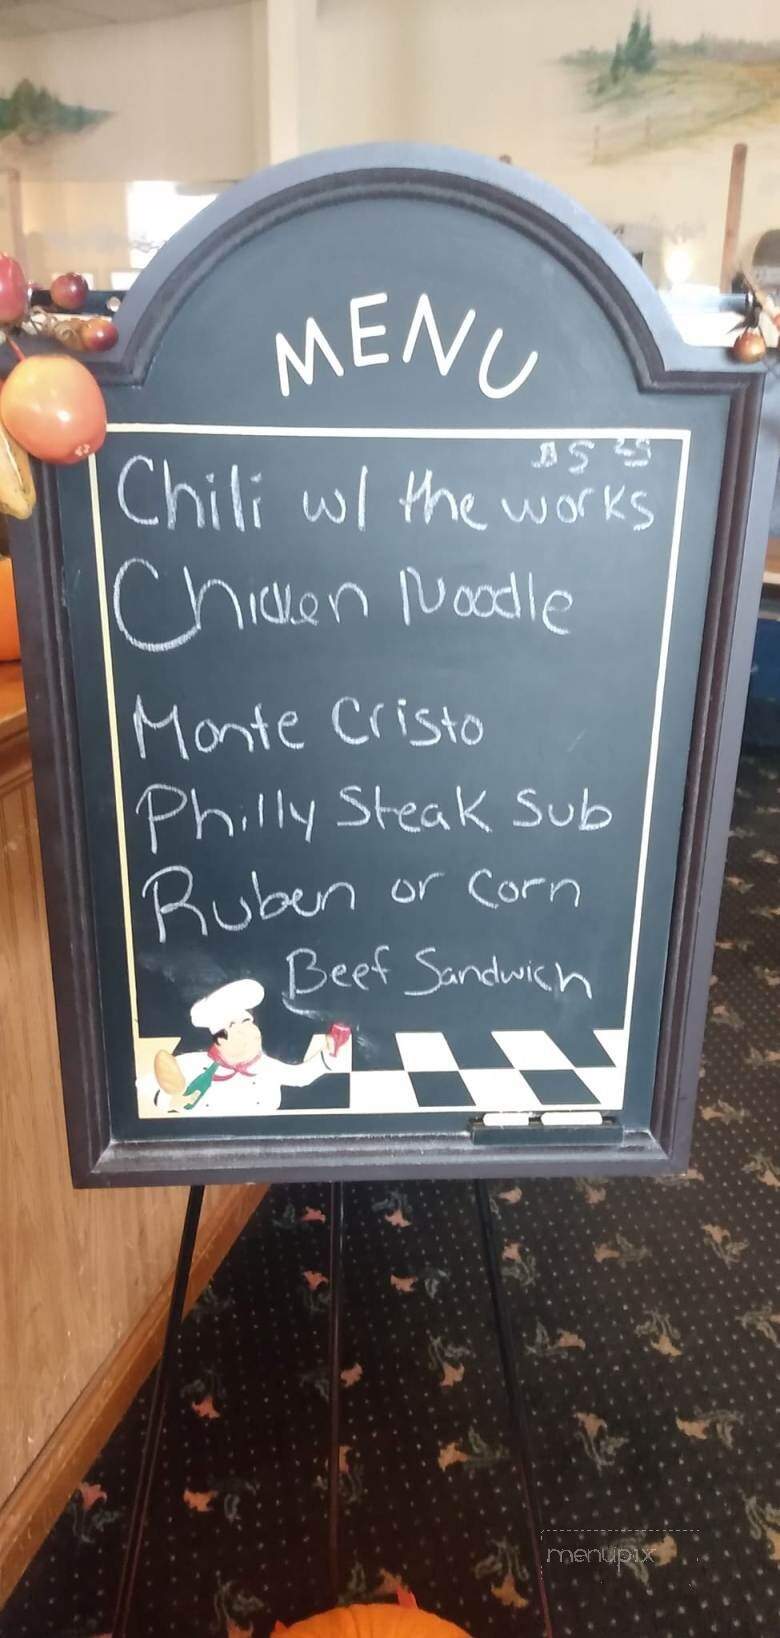 MENU
$5 25
Chili w/ the works
Chicken Noodle
Monte Cristo
Philly Steak Sub
Ruben or Corn
Beef Sandwich
menupix